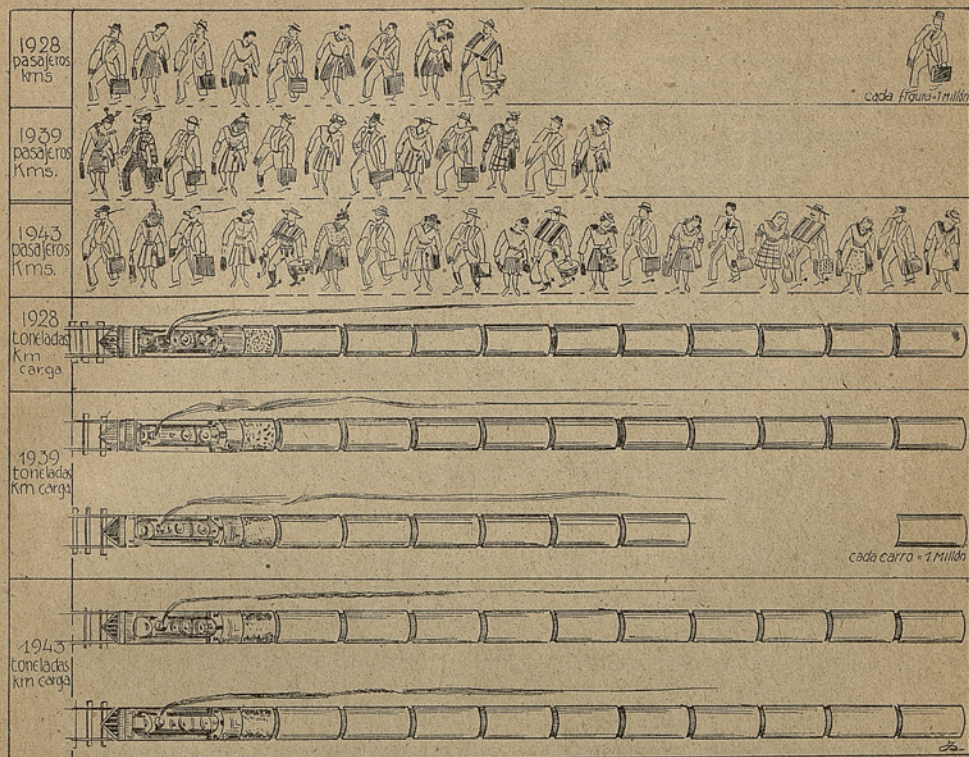 1928
pasajeros
kms
cada figura=1 millón
1939
pasajeros
Kms.
1943
pasajeros
Kms.
1928
toneladas
Km
carga
1939
toneladas
Km carga
cada carro = 1 Millón
1943
toneladas
km carga